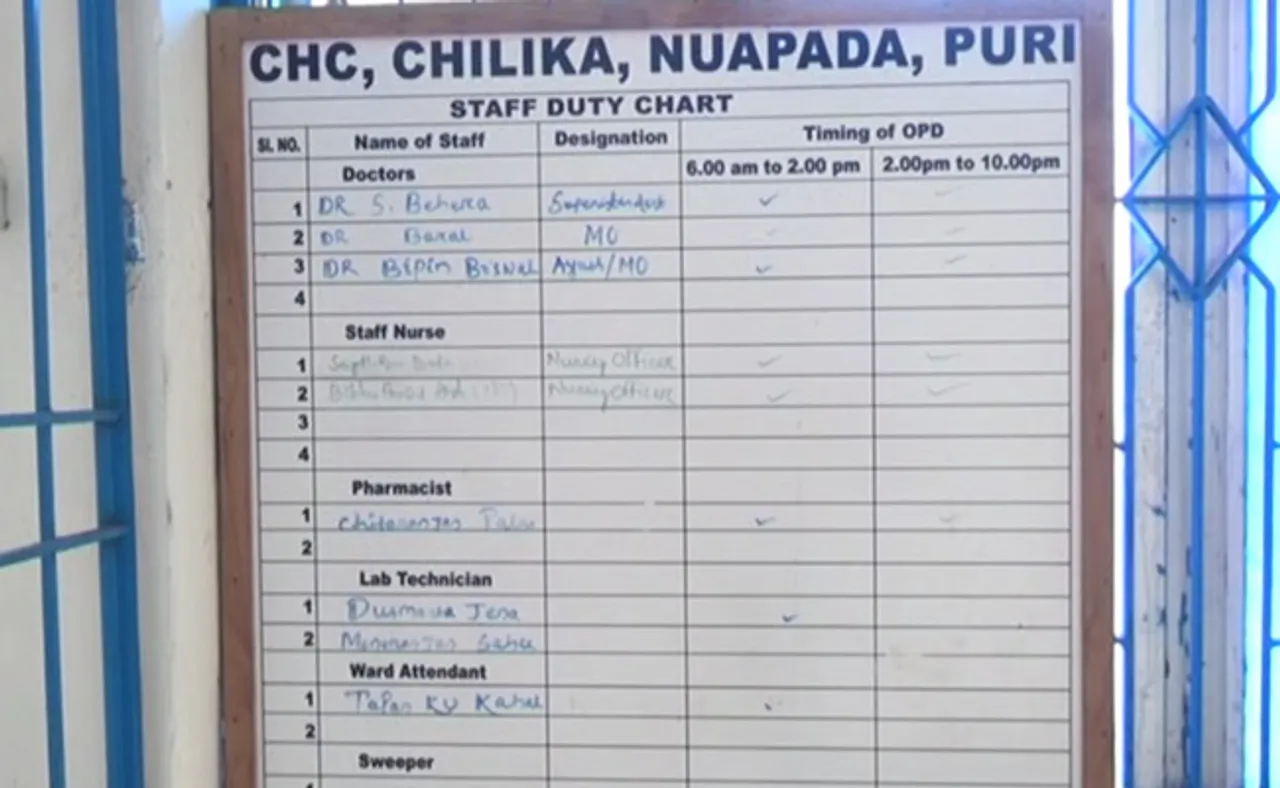 CHC, CHILIKA, NUAPADA, PURI
STAFF DUTY CHART
SL NO. Name of Staff Designation Timing of OPD
Doctors 6.00 am to 2.00 pm 2.00pm to 10.00pm
1 DR S. Behera Superintendent ✓
2 DR Baral MO
3 DR Bipin Biswal Ayush/MO ✓
4
Staff Nurse
1 Officer ✓ ✓
2 Officer ✓ ✓
3
4
Pharmacist
1 ✓
2
Lab Technician
1 Jena ✓
2 Sahu
Ward Attendant
1 Tapan Ku
2
Sweeper